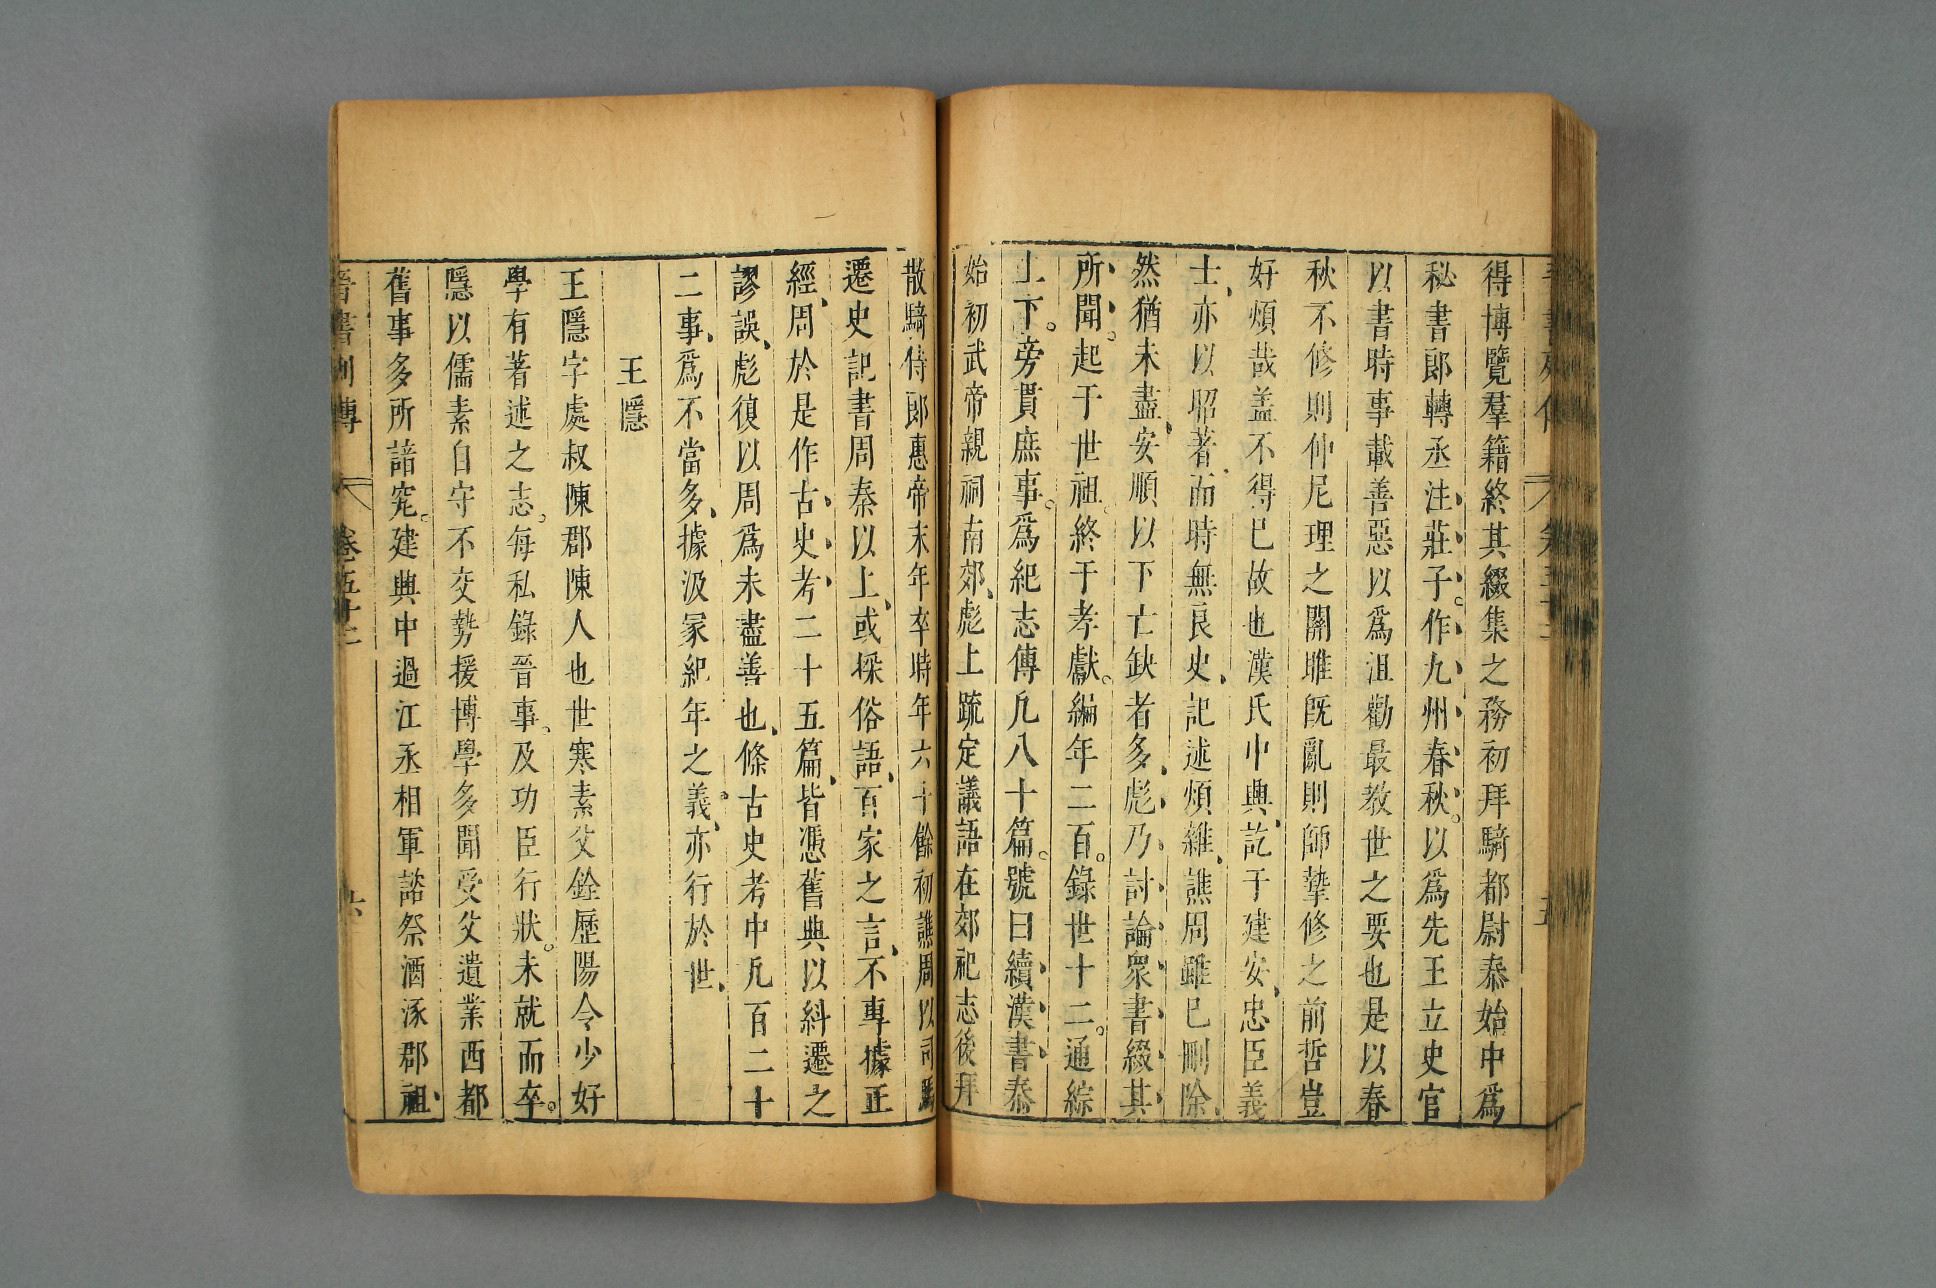 得博覽羣籍終其綴集之務初拜騎都尉泰始中爲
秘書郎轉丞注莊子作九州春秋以爲先王立史官
以書時事載善惡以爲沮勸最教世之要也是以春
秋不修則仲尼理之關雎旣亂則師摯修之前哲豈
好煩哉盖不得已故也漢氏中興訖于建安忠臣義
士亦以昭著而時無良史記述煩雜譙周雖已刪除
然猶未盡安順以下亡缺者多彪乃討論衆書綴其
所聞。起于世祖終于孝獻。編年二百。錄世十二。通綜
上下。旁貫庶事。爲紀志傳凡八十篇。號曰續漢書泰
始初武帝親祠南郊彪上疏定議語在郊祀志後拜
散騎侍郎惠帝末年卒時年六十餘初譙周以司馬
遷史記書周秦以上或採俗語百家之言不專據正
經周於是作古史考二十五篇皆憑舊典以糾遷之
謬誤彪復以周爲未盡善也條古史考中凡百二十
二事爲不當多據汲冢紀年之義亦行於世
王隱
王隱字處叔陳郡陳人也世寒素父銓歷陽令少好
學有著述之志。每私錄晉事。及功臣行狀。未就而卒。
隱以儒素自守不交勢援博學多聞受父遺業西都
舊事多所諳究。建興中過江丞相軍諮祭酒涿郡祖
晉書列傳 卷五十二 六